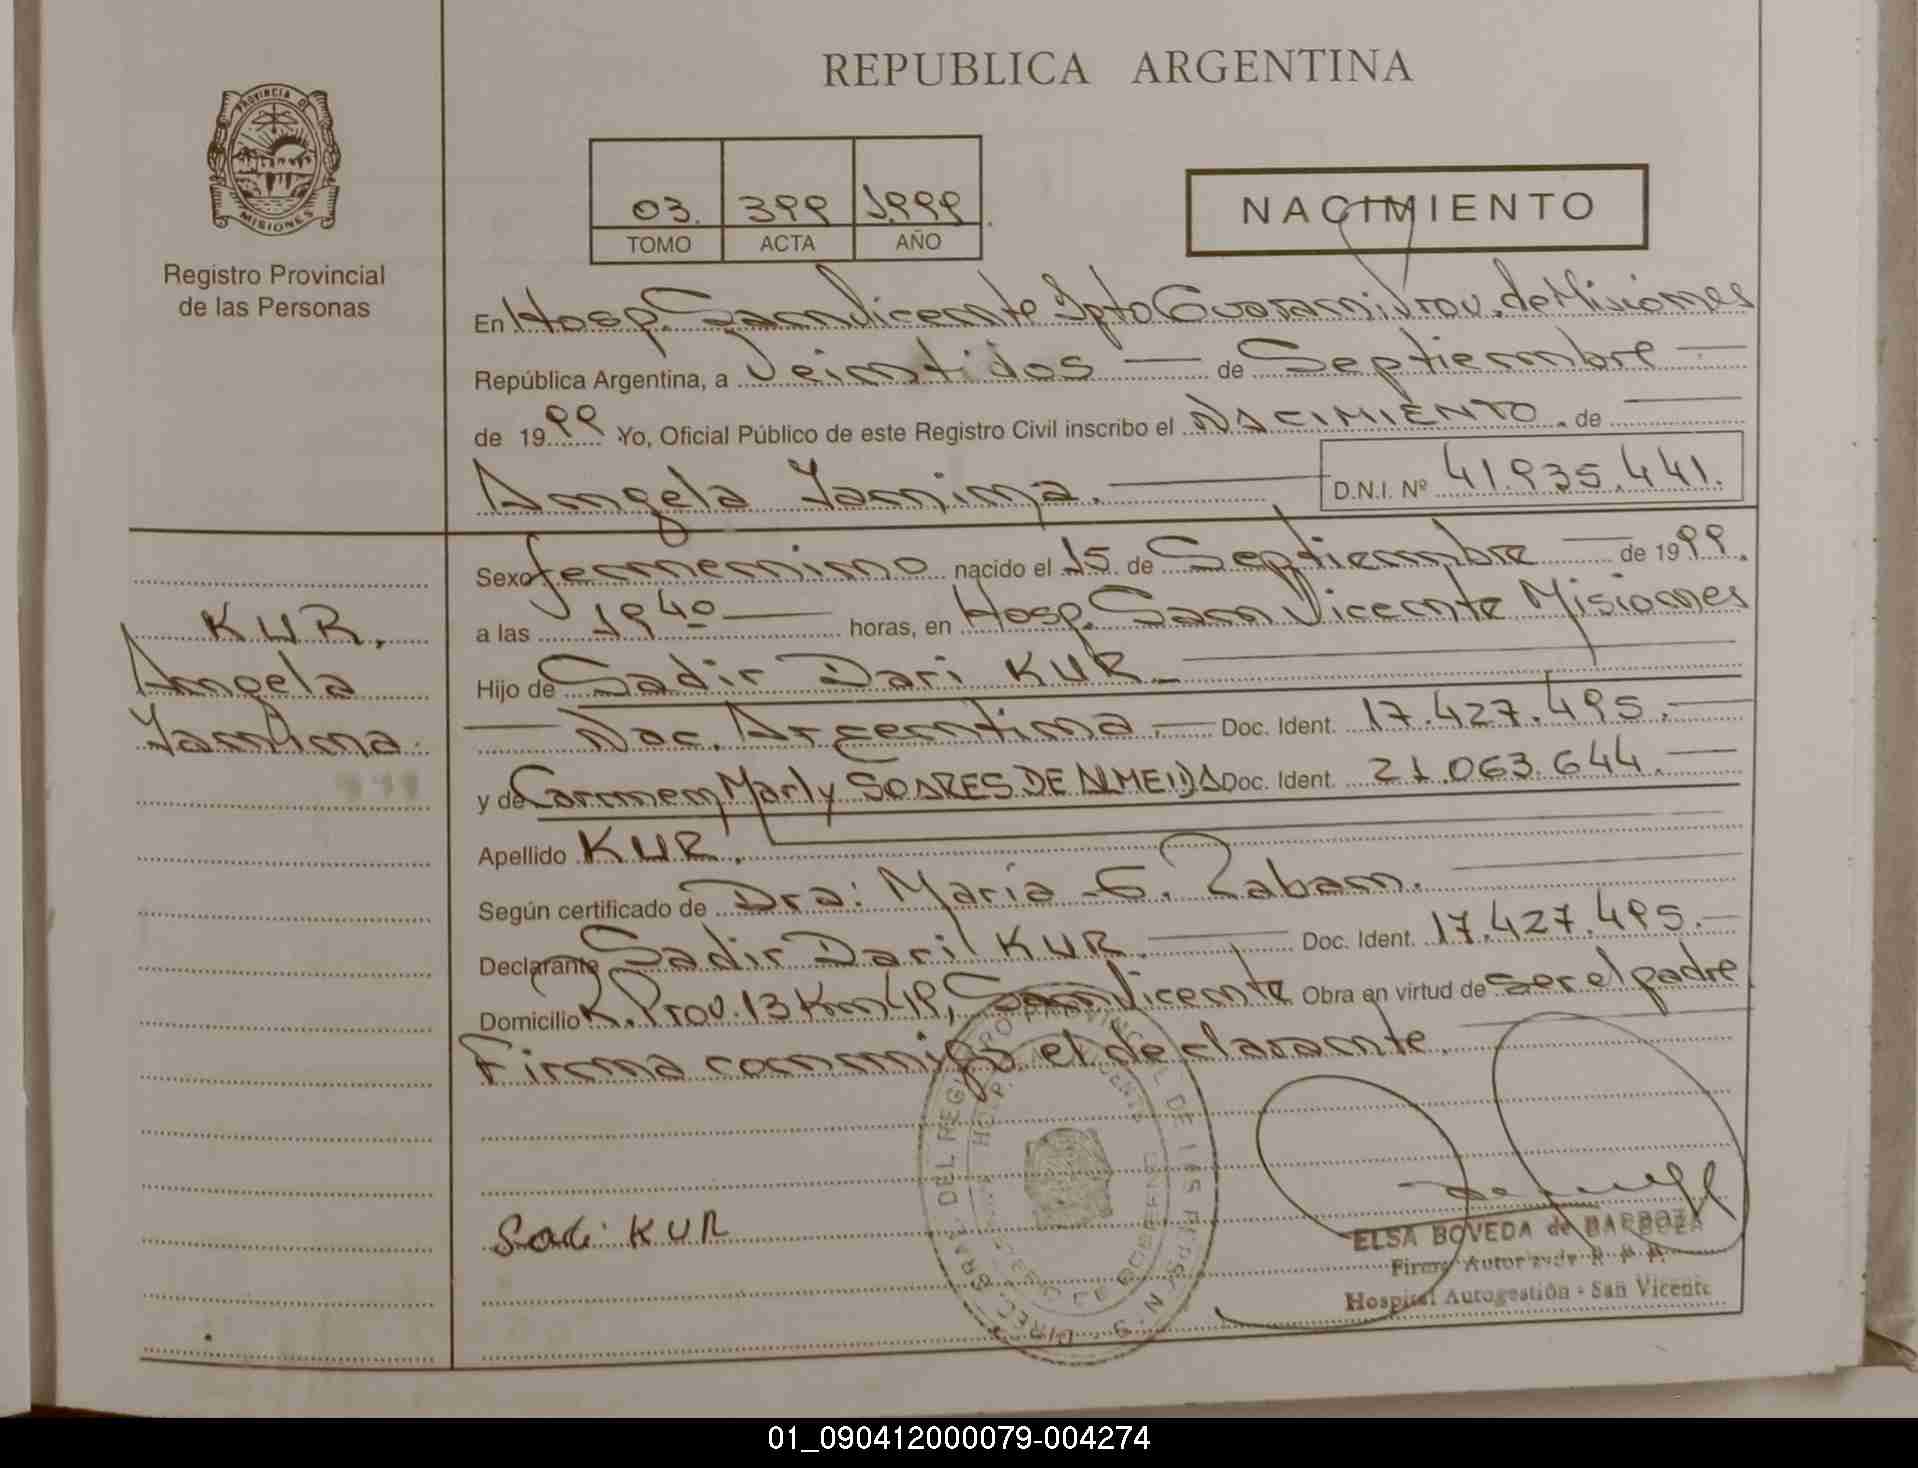 REPUBLICA ARGENTINA
PROVINCIA DE
MISIONES
Registro Provincial
de las Personas
03. 399 1.999
TOMO ACTA AÑO
NACIMIENTO
En Hosp. San Vicente Dpto Guarani Prov. de Misiones
República Argentina, a Veintidos de Septiembre
de 1999 Yo, Oficial Público de este Registro Civil inscribo el NACIMIENTO. de
Angela Yanina. D.N.I. Nº 41.935.441.
Sexo femenino nacido el 15 de Septiembre de 1999.
a las 19 40 horas, en Hosp. San Vicente Misiones
Hijo de Sadir Dari KUR
Nac. Argentina. Doc. Ident. 17.427.495.
y de Carmen Marly SOARES DE ALMEIDA Doc. Ident. 21.063.644.
Apellido KUR.
Según certificado de Dra: María G. Zaban.
Declarante Sadir Dari KUR. Doc. Ident. 17.427.495.
Domicilio R. Prov. 13 Km 49, San Vicente Obra en virtud de ser el padre
Firma conmigo el declarante.
KUR,
Angela
Yanina.
Sadi KUR
ELSA BOVEDA de BARBOZA
Hospital Autogestión - San Vicente
01_090412000079-004274